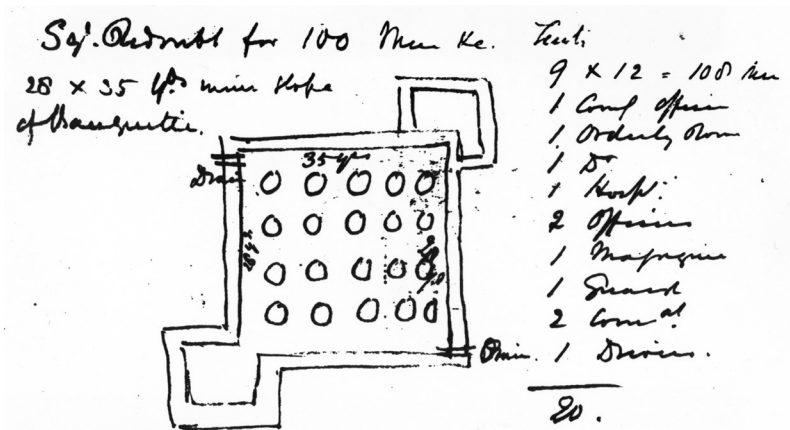 Sqr. Redoubt for 100 Men &c.
28 x 35 yds minus slope
of Banquette.
Drain
35 yds
28 yds
Drain.
Tents
9 x 12 = 108 men
1 Comg officer
1 Orderly Room
1 Dr
1 Hospl.
2 Officers
1 Magazine
1 Guard
2 Comal.
1 Drivers.
20.